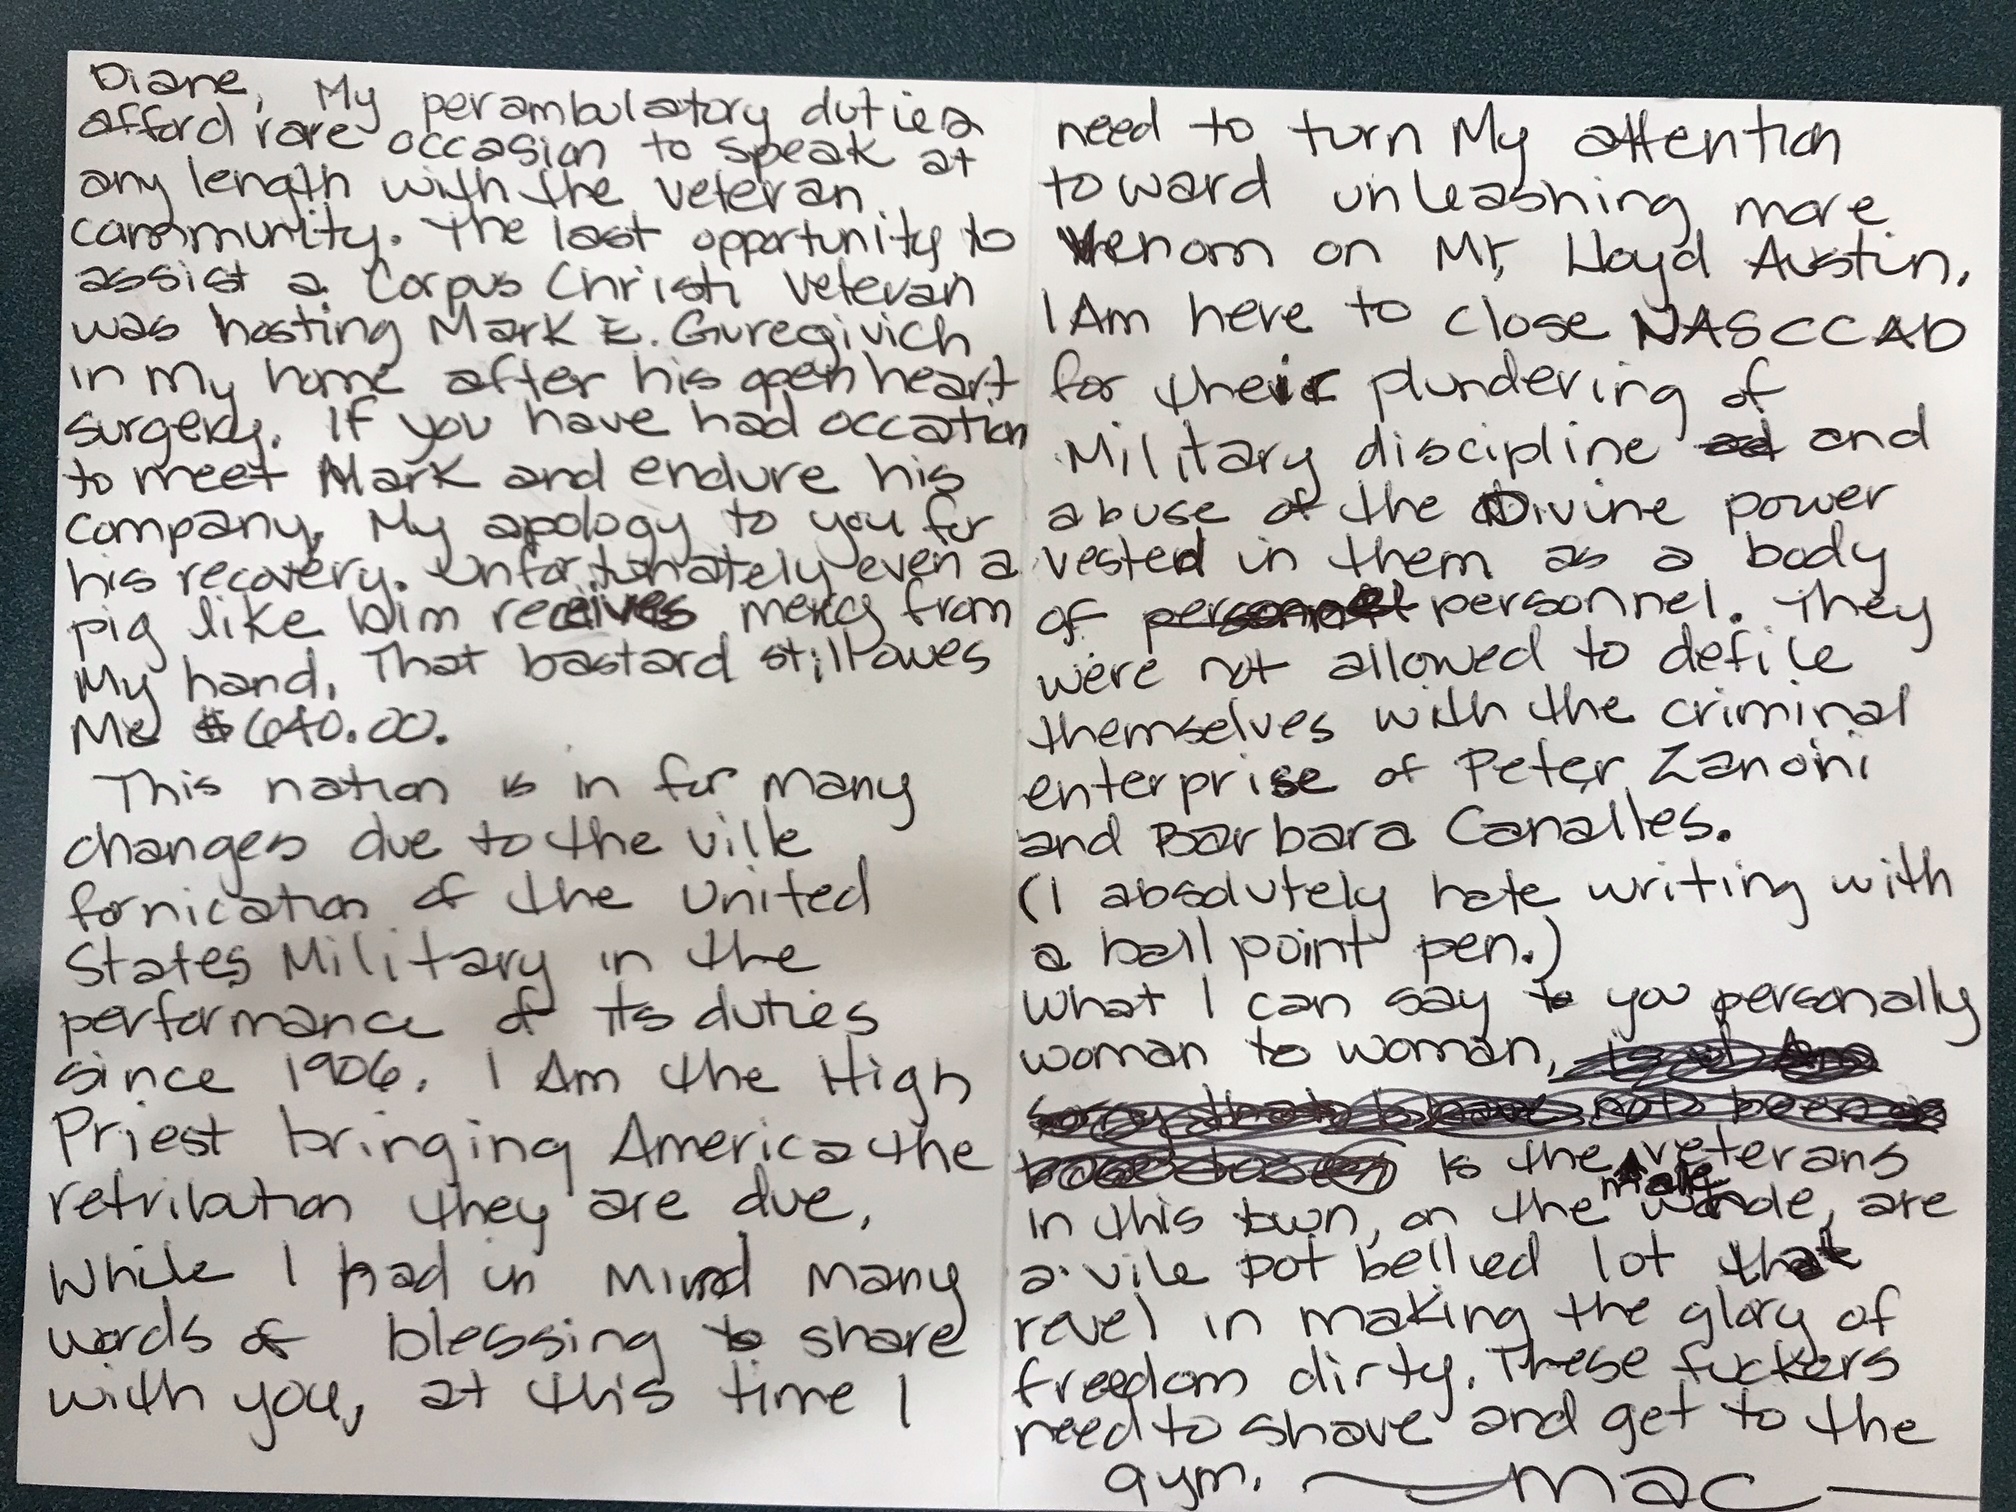 Diane, My perambulatory duties
afford rare occasion to speak at
any length with the veteran
community. The last opportunity to
assist a Corpus Christi veteran
was hosting Mark E. Guregivich
in my home after his open heart
surgery. If you have had occation
to meet Mark and endure his
company, My apology to you for
his recovery. Unfortunately even a
pig like him receives mercy from
My hand. That bastard still owes
Me $640.00.
This nation is in for many
changes due to the ville
fornication of the United
States Military in the
performance of its duties
since 1906. I Am the High
Priest bringing America the
retribution they are due.
While I had in Mind Many
words of blessing to share
with you, at this time I
need to turn My attention
toward unleashing more
venom on Mr, Lloyd Austin.
I Am here to close NASCCAD
for their plundering of
Military discipline and
abuse of the Divine power
vested in them as a body
of personnel personnel. They
were not allowed to defile
themselves with the criminal
enterprise of Peter Zanoni
and Barbara Canalles.
(I absolutely hate writing with
a ball point pen.)
What I can say to you personally
woman to woman,
sorry that I have not been
is the male veterans
in this town, on the whole, are
a vile pot bellied lot that
revel in making the glory of
freedom dirty. These fuckers
need to shave and get to the
gym. Mac